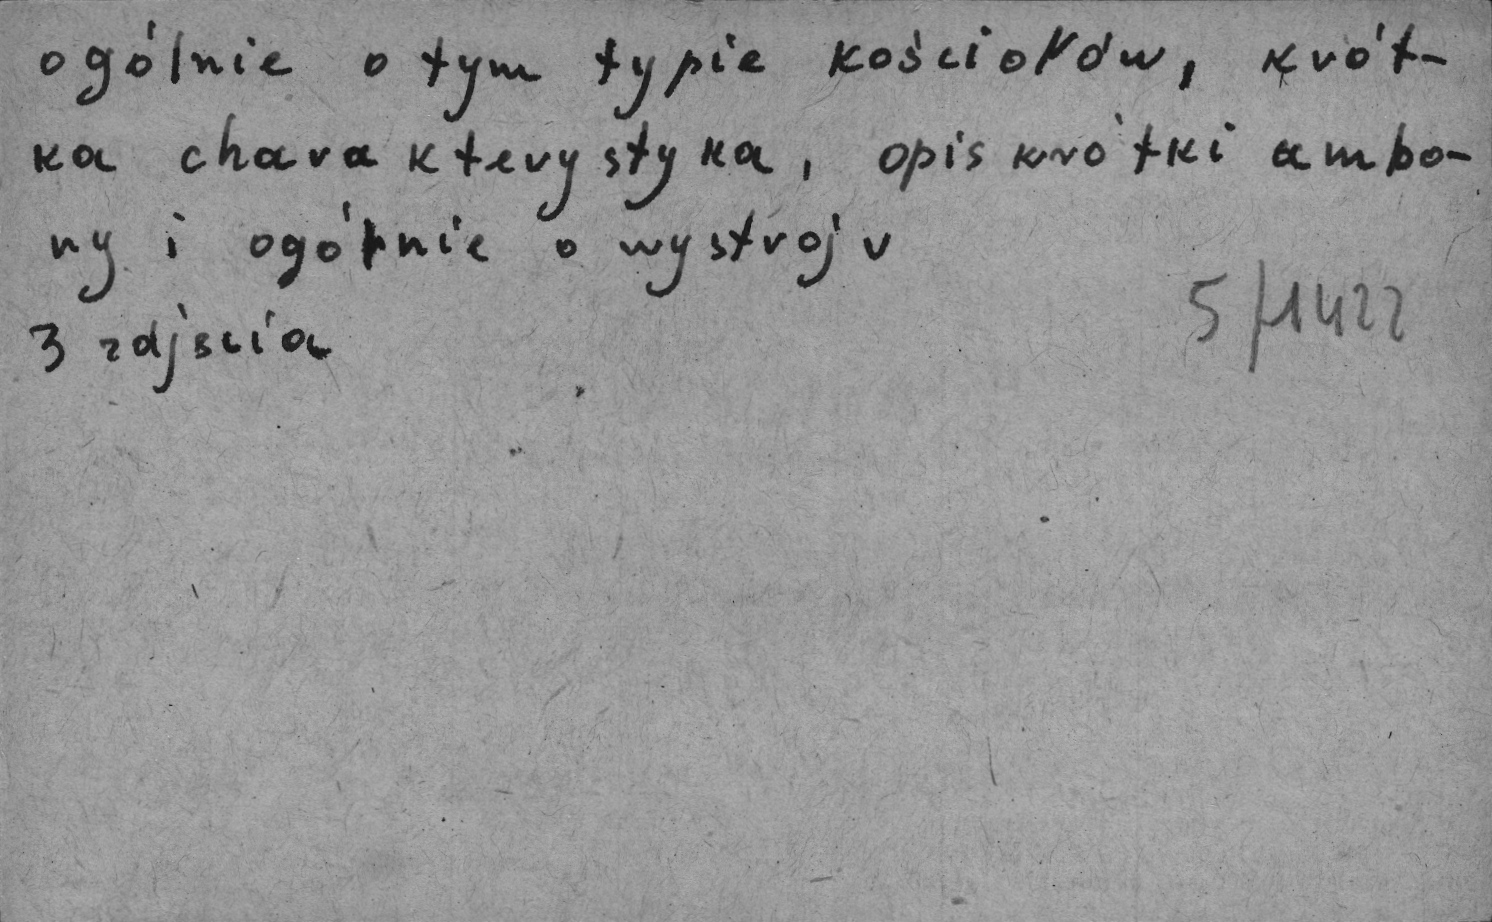 ogólnie o tym typie kościołów, krót-
ka charakterystyka, opis krótki ambo-
ny i ogólnie o wystroju
3 zdjścia
5/1422